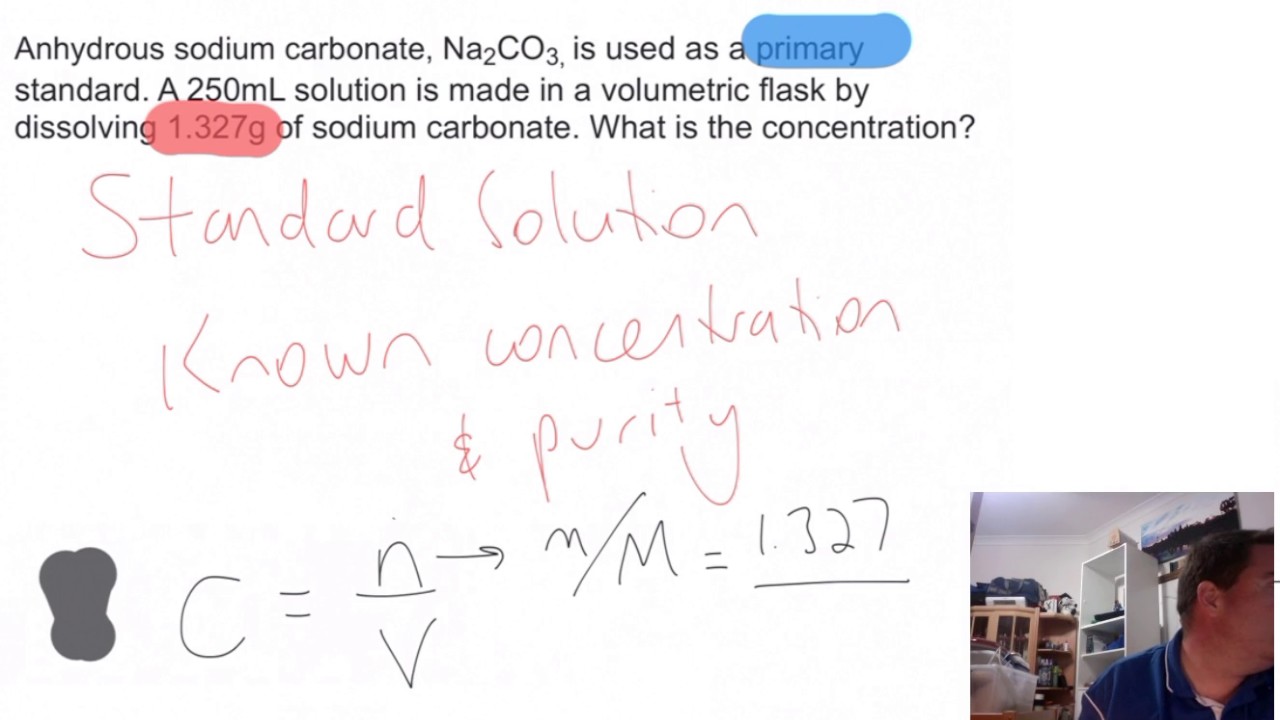 Anhydrous sodium carbonate, Na₂CO₃, is used as a primary
standard. A 250mL solution is made in a volumetric flask by
dissolving 1.327g of sodium carbonate. What is the concentration?
Standard Solution
Known concentration
& purity
C = n/V → m/M = 1.327